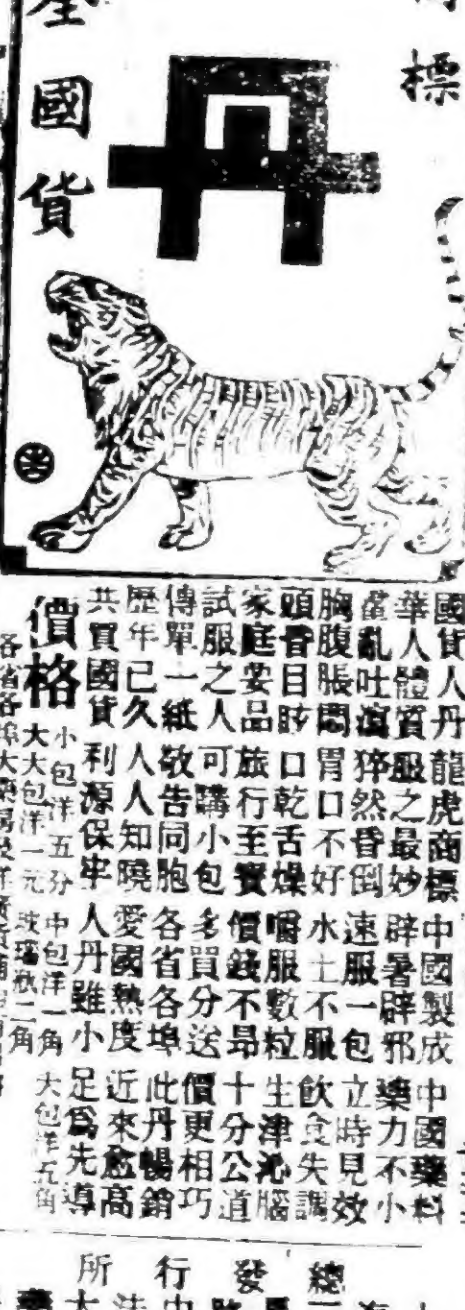 標
丹
國貨
國貨人丹 龍虎商標 中國製成 中國藥料
華人體質 服之最妙 辟暑辟邪 藥力不小
亂吐瀉 猝然昏倒 速服一包 立時見效
胸腹脹悶 胃口不好 水土不服 飲食失調
頭昏目眩 口乾舌燥 嚼服數粒 生津沁腦
家庭妥品 旅行至寶 價錢不昂 十分公道
試服之人 可購小包 多買分送 價更相巧
傳單一紙 敬告同胞 各省各埠 此丹暢銷
歷年已久 人人知曉 愛國熱度 近來愈高
共買國貨 利源保牢 人丹雖小 足爲先導
價格
小包洋五分 中包洋一角 大包洋五角
大大包洋一元 玻璃瓶二角
各省各埠大藥房
總
發
行
所